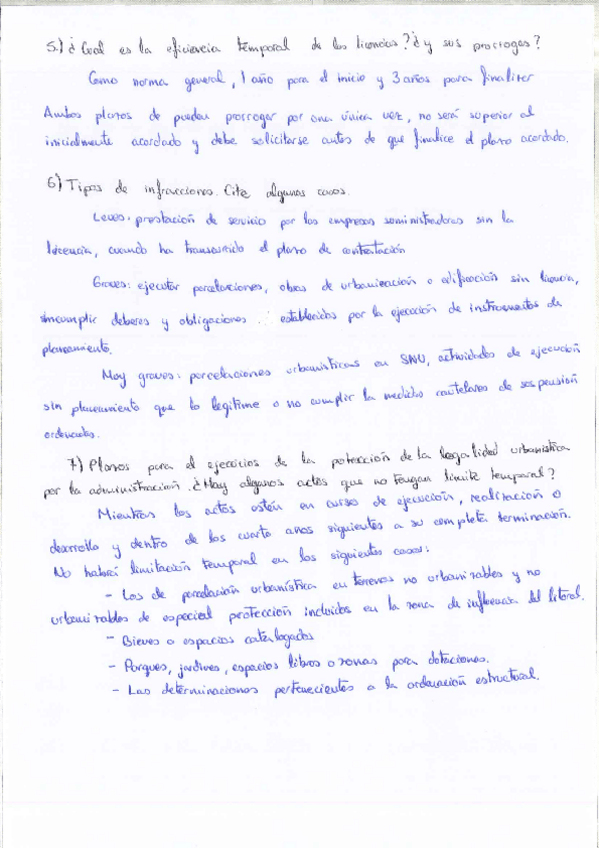 5.) ¿Cual es la eficiencia temporal de las licencias? ¿y sus prorrogas?
Como norma general, 1 año para el inicio y 3 años para finalizar
Ambos plazos se pueden prorrogar por una única vez, no será superior al
inicialmente acordado y debe solicitarse antes de que finalice el plazo acordado.
6) Tipos de infracciones. Cite algunos casos.
Leves: prestación de servicio por las empresas suministradoras sin la
licencia, cuando ha transcurrido el plazo de contratación
Graves: ejecutar parcelaciones, obras de urbanización o edificación sin licencia,
incumplir deberes y obligaciones establecidos por la ejecución de instrumentos de
planeamiento.
Muy graves: parcelaciones urbanísticas en SNU, actividades de ejecución
sin planeamiento que lo legitime o no cumplir la medidas cautelares de suspensión
ordenadas.
7) Plazos para el ejercicios de la potección de la legalidad urbanística
por la administración. ¿Hay algunos actos que no tengan limite temporal?
Mientras los actos estén en curso de ejecución, realización o
desarrollo y dentro de los cuarto años siguientes a su completa terminación.
No habrá limitación temporal en los siguientes casos:
- Los de parcelación urbanística en terrenos no urbanizables y no
urbanizables de especial protección incluidos en la zona de influencia del litoral.
- Bienes o espacios catalogados
- Parques, jardines, espacios libres o zonas para dotaciones.
- Las determinaciones pertenecientes a la ordenación estructural.